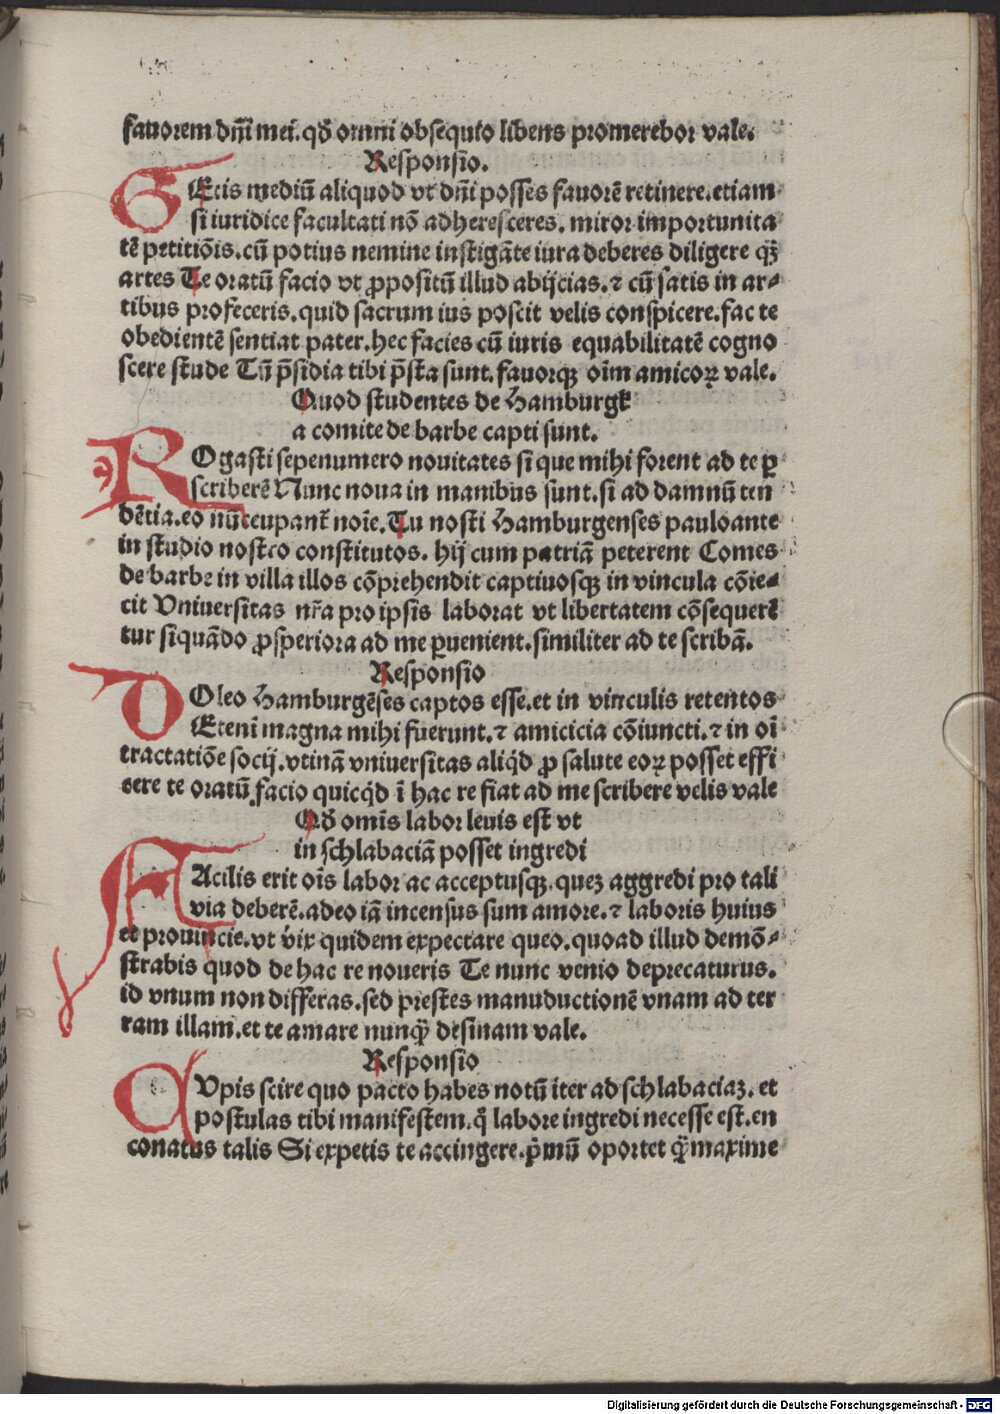 fauorem dn̄i mei. qđ omni obsequio libens promerebor vale.
Responsio.
GEtis mediū aliquod vt dn̄i posses fauorē retinere. etiam
si iuridice facultati nō adheresceres. miror importunita
tē petitiōis. cū potius nemine instigāte iura deberes diligere qꝫ
artes Te oratū facio vt ꝓpositū illud abijcias. ⁊ cū satis in ar⸗
tibus profeceris. quid sacrum ius poscit velis conspicere. fac te
obedientē sentiat pater. hec facies cū iuris equabilitatē cogno
scere stude Tū p̄sidia tibi p̄sta sunt. fauorqꝫ oīm amicoꝝ vale.
Quod studentes de Hamburgk
a comite de barbe capti sunt.
ROgasti sepenumero nouitates si que mihi forent ad te ꝑ
scriberē Nunc noua in manibus sunt. si ad damnū ten
dētia. eo nūccupant᷑ noīe. Tu nosti Hamburgenses pauloante
in studio nostro constitutos. hij cum patriā peterent Comes
de barbe in villa illos cōprehendit captiuosqꝫ in vincula cōie⸗
cit Vniuersitas nr̄a pro ipsis laborat vt libertatem cōsequerē
tur siquādo ꝓsperiora ad me ꝑuenient. similiter ad te scribā.
Responsio
DOleo Hamburgēses captos esse. et in vinculis retentos
Etenī magna mihi fuerunt. ⁊ amicicia cōiuncti. ⁊ in oī
tractatiōe socij. vtinā vniuersitas aliqd̄ ꝓ salute eoꝝ posset effi
cere te oratū facio quicqd̄ ī hac re fiat ad me scribere velis vale
Qđ omīs labor leuis est vt
in schlabaciā posset ingredi
FAcilis erit oīs labor ac acceptusqꝫ. queꝫ aggredi pro tali
via deberē. adeo iā incensus sum amore. ⁊ laboris huius
et prouincie. vt v̇ix quidem expectare queo. quoad illud demō⸗
strabis quod de hac re noueris Te nunc venio deprecaturus.
id vnum non differas. sed prestes manuductionē vnam ad ter
ram illam. et te amare nunqꝫ desinam vale.
Responsio
CVpis scire quo pacto habes notū iter ad schlabaciaꝫ. et
postulas tibi manifestem. q̄ labore ingredi necesse est. en
conatus talis Si expetis te accingere. p̄mū oportet qꝫ maxime
Digitalisierung gefördert durch die Deutsche Forschungsgemeinschaft - DFG